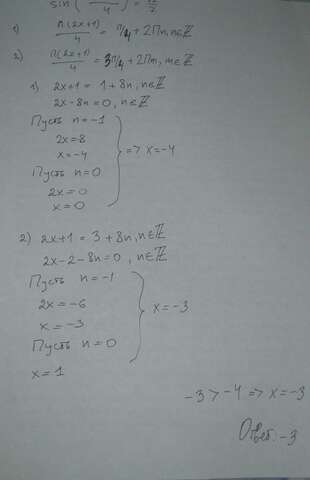 sin( /4) = √2/2
1) π(2x+1)/4 = π/4 + 2πn, n∈ℤ
2) π(2x+1)/4 = 3π/4 + 2πn, n∈ℤ
1) 2x+1 = 1+8n, n∈ℤ
2x-8n=0, n∈ℤ
Пусть n=-1
2x=8
x=-4
=> x=-4
Пусть n=0
2x=0
x=0
2) 2x+1 = 3+8n, n∈ℤ
2x-2-8n=0, n∈ℤ
Пусть n=-1
2x=-6
x=-3
x=-3
Пусть n=0
x=1
-3>-4 => x=-3
Ответ: -3